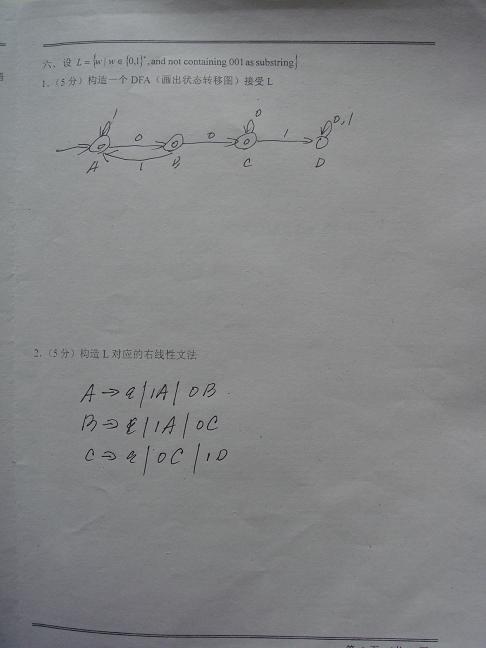 六、设 L = {w | w ∈ {0,1}*, and not containing 001 as substring}
1.（5分）构造一个 DFA（画出状态转移图）接受 L
1 0 0 0 1 0,1
1
A B C D
2.（5分）构造 L 对应的右线性文法
A → ε | 1A | 0B
B → ε | 1A | 0C
C → ε | 0C | 1D